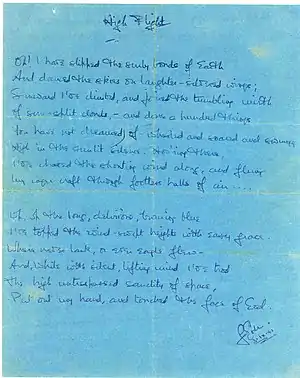 High Flight
Oh! I have slipped the surly bonds of Earth
And danced the skies on laughter-silvered wings;
Sunward I've climbed, and joined the tumbling mirth
of sun-split clouds, - and done a hundred things
You have not dreamed of - wheeled and soared and swung
High in the sunlit silence. Hov'ring there,
I've chased the shouting wind along, and flung
My eager craft through footless halls of air....
Up, up the long, delirious, burning blue
I've topped the wind-swept heights with easy grace.
Where never lark, or even eagle flew -
And, while with silent, lifting mind I've trod
The high untrespassed sanctity of space,
Put out my hand, and touched the face of God.